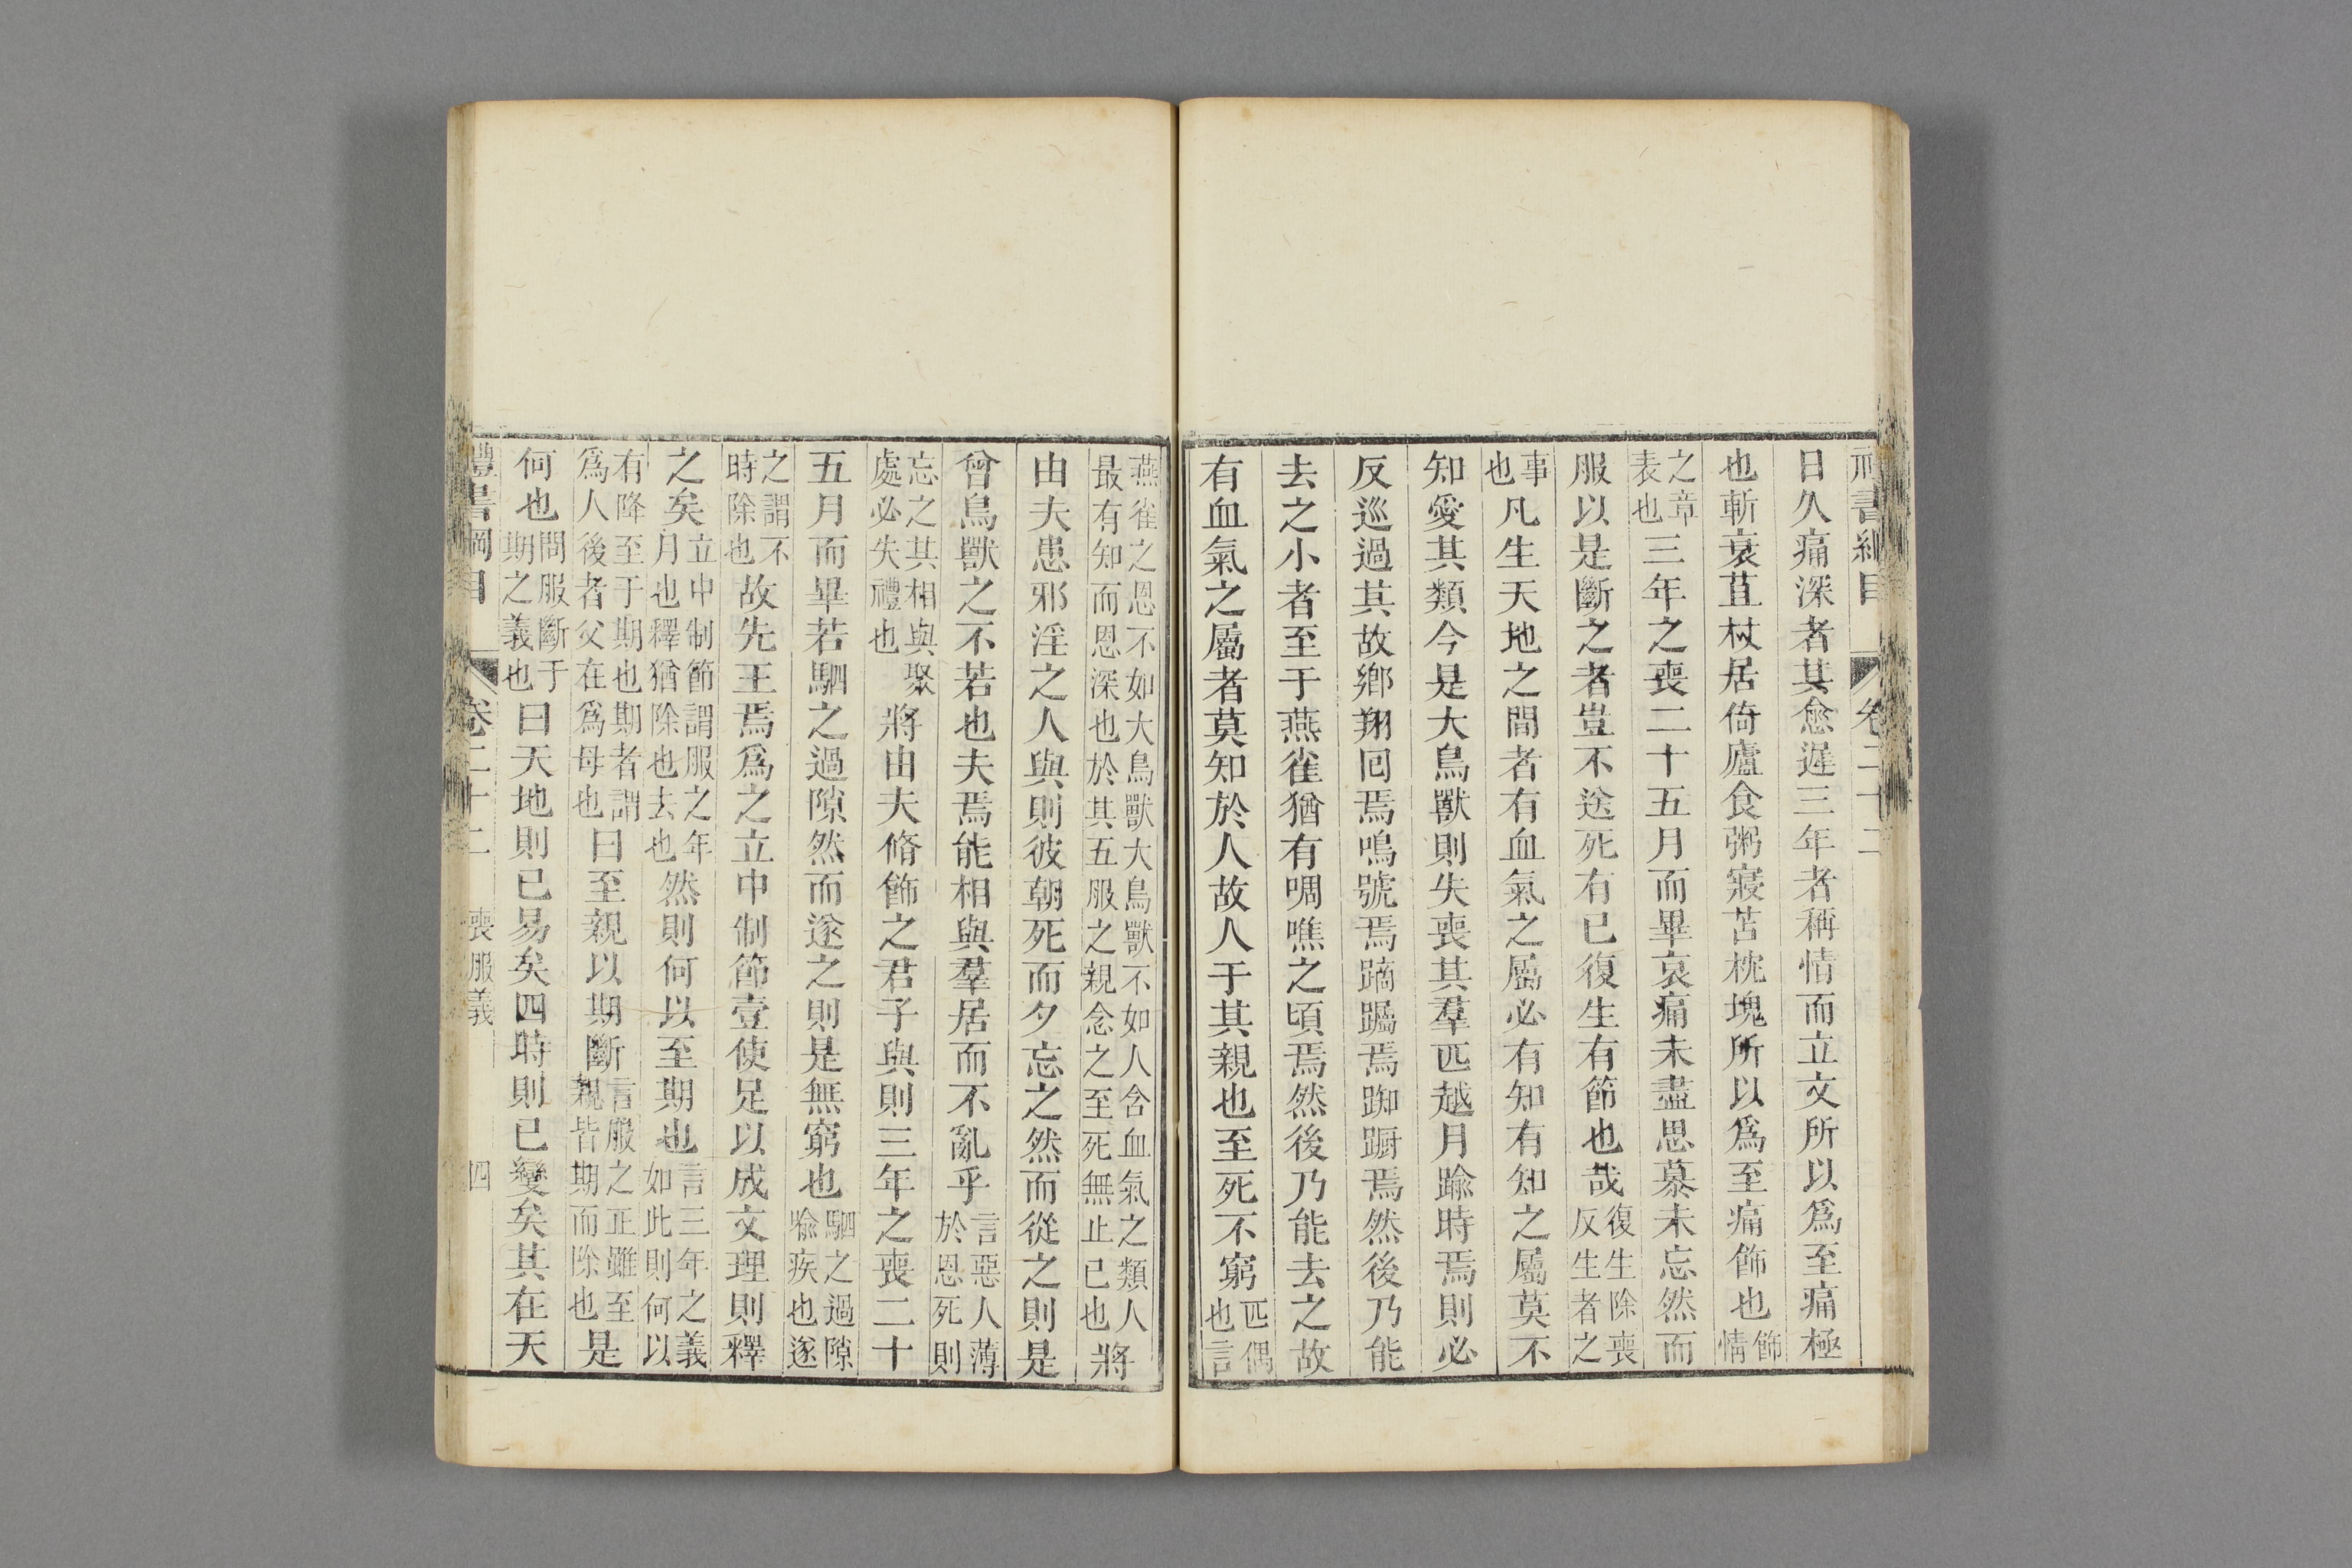 書綱目 卷二十二
日久痛深者其愈遲三年者稱情而立文所以爲至痛極
也斬衰苴杖居倚廬食粥寢苫枕塊所以爲至痛飾也飾情
之章表也三年之喪二十五月而畢哀痛未盡思慕未忘然而
服以是斷之者豈不送死有已復生有節也哉復生除喪反生者之
事也凡生天地之間者有血氣之屬必有知有知之屬莫不
知愛其類今是大鳥獸則失喪其羣匹越月踰時焉則必
反巡過其故鄉翔回焉鳴號焉蹢躅焉踟躕焉然後乃能
去之小者至于燕雀猶有啁噍之頃焉然後乃能去之故
有血氣之屬者莫知於人故人于其親也至死不窮匹偶也言
燕雀之恩不如大鳥獸大鳥獸不如人含血氣之類人最有知而恩深也於其五服之親念之至死無止已也將
由夫患邪淫之人與則彼朝死而夕忘之然而從之則是
曾鳥獸之不若也夫焉能相與羣居而不亂乎言惡人薄於恩死則
忘之其相與聚處必失禮也將由夫脩飾之君子與則三年之喪二十
五月而畢若駟之過隙然而遂之則是無窮也駟之過隙喻疾也遂
之謂不時除也故先王焉爲之立中制節壹使足以成文理則釋
之矣立中制節謂服之年月也釋猶除也去也然則何以至期也言三年之義如此則何以
有降至于期也期者謂爲人後者父在爲母也曰至親以期斷言服之正雖至親皆期而除也是
何也問服斷于期之義也曰天地則已易矣四時則已變矣其在天
禮書綱目 卷二十二 喪服義 四